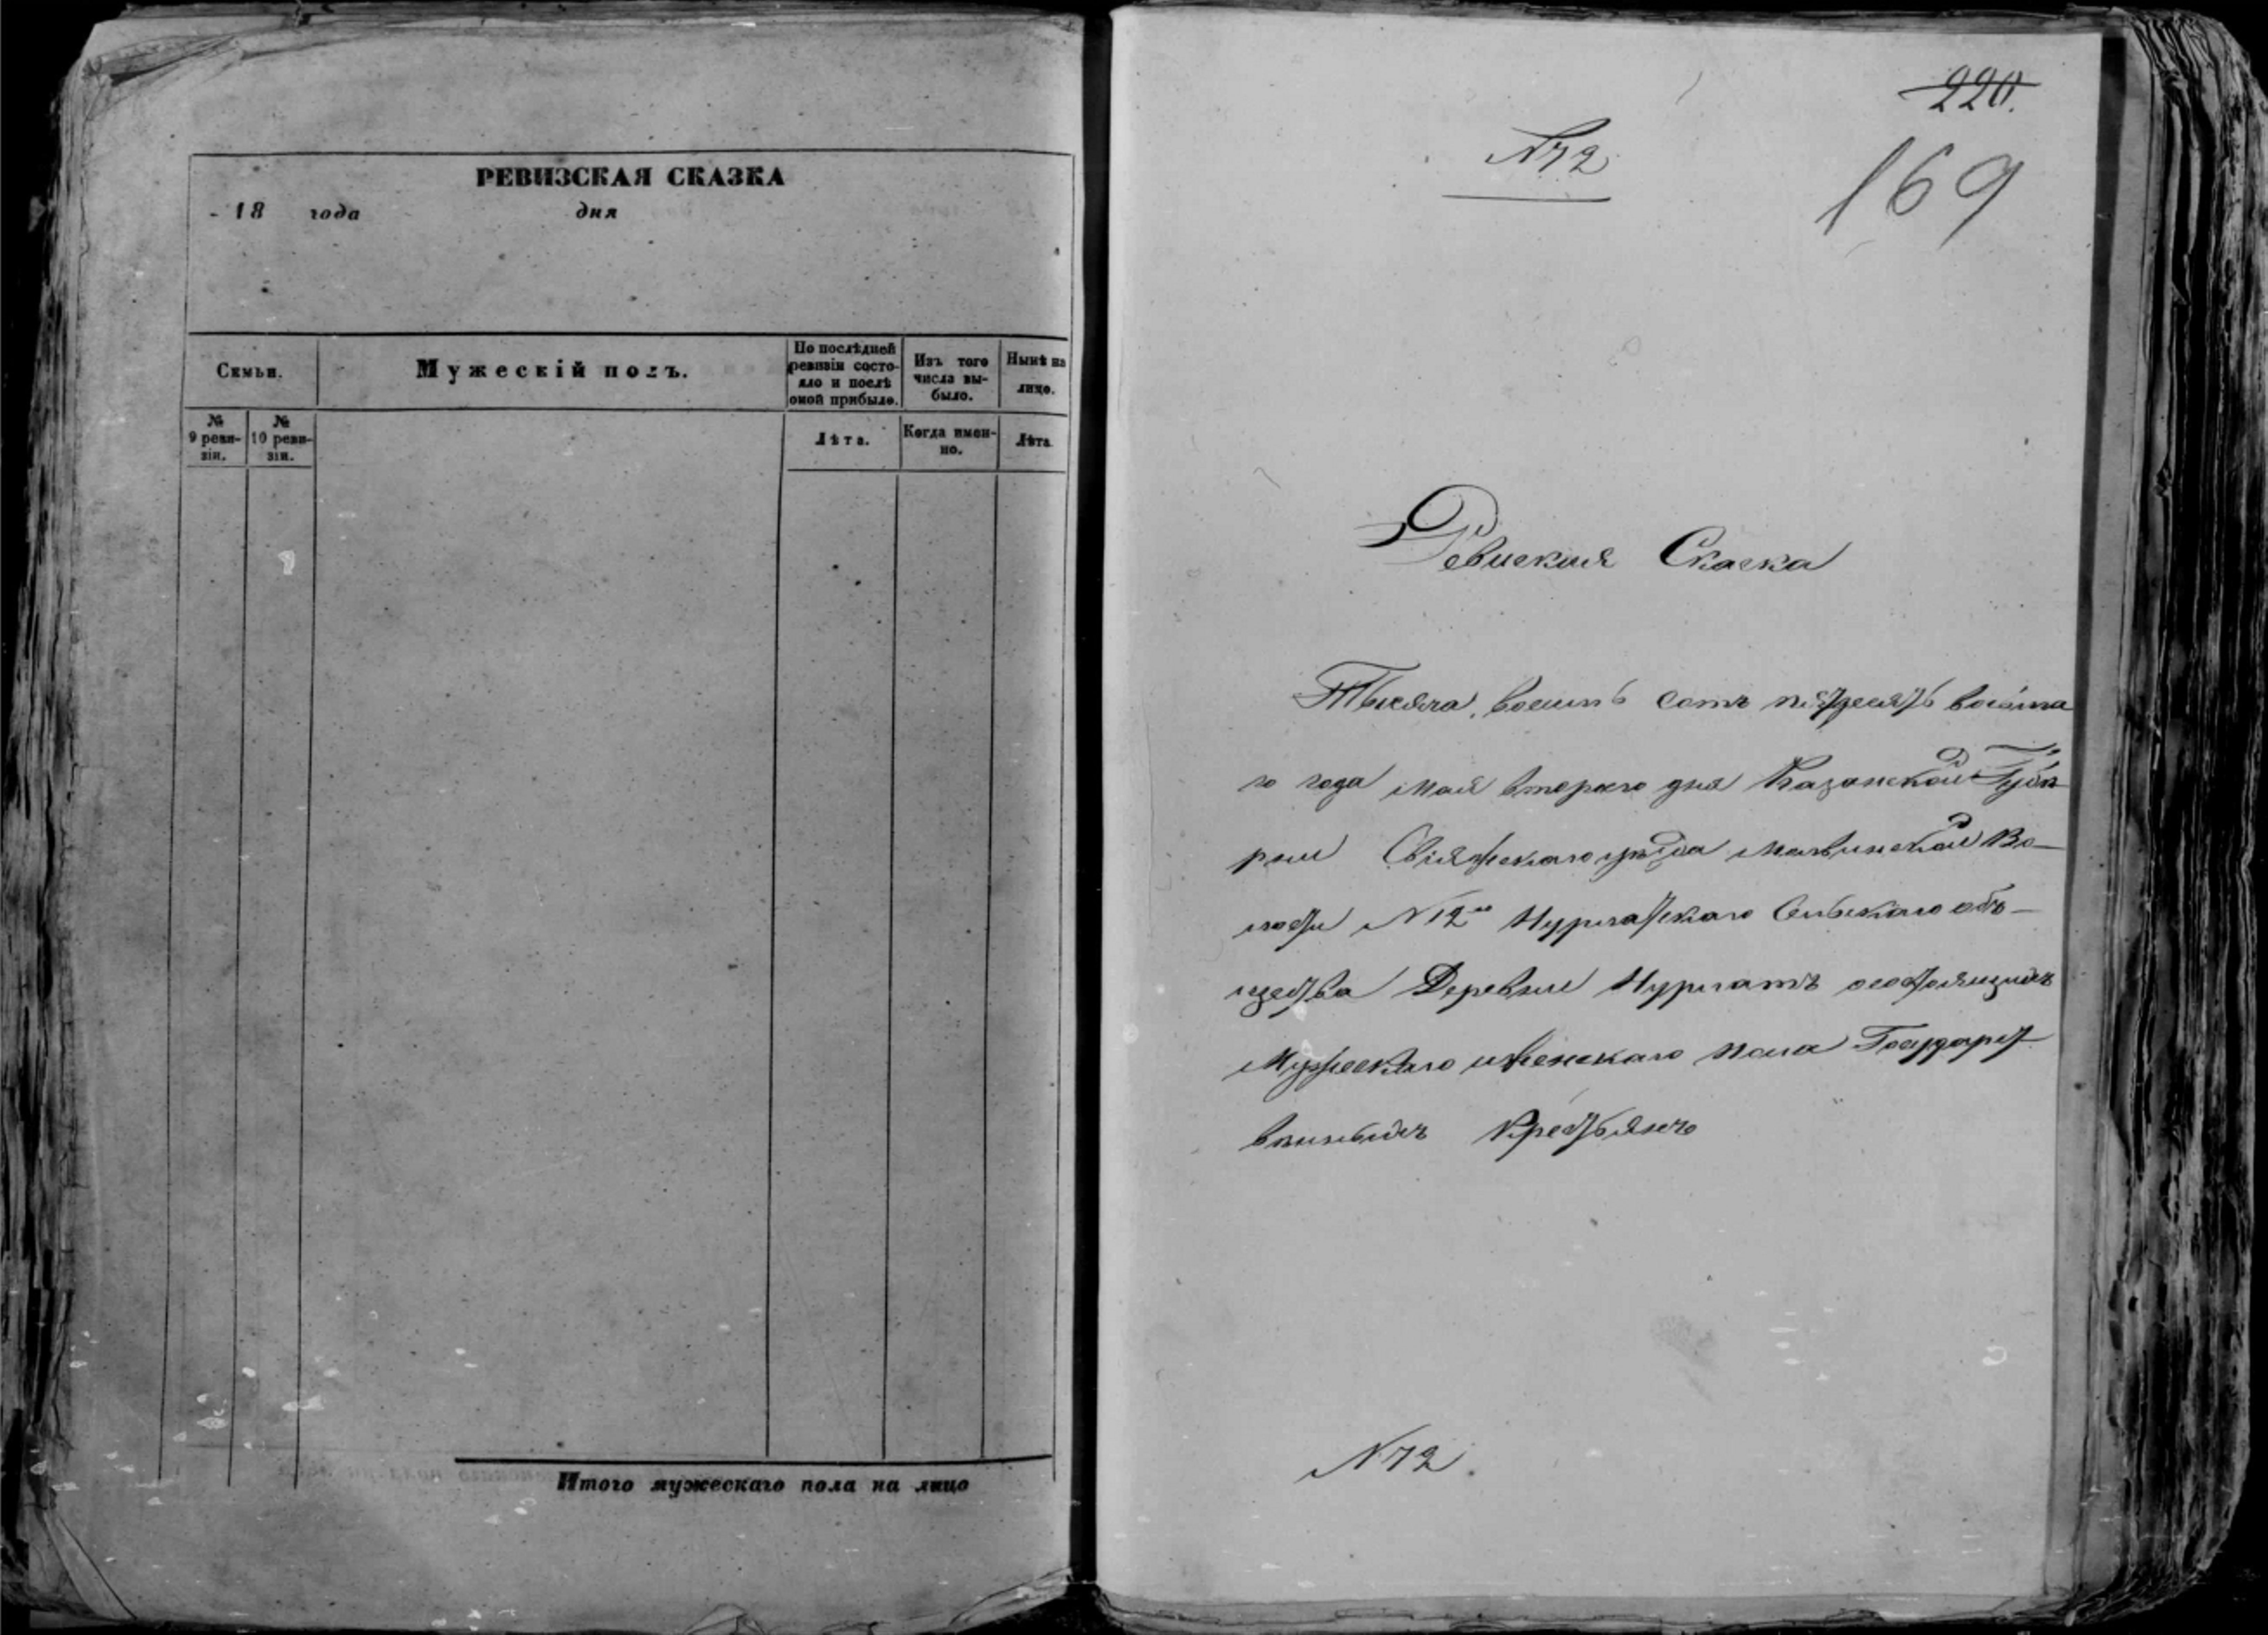 РЕВИЗСКАЯ СКАЗКА
18 года дня
Семьи.
Мужескій полъ.
По послѣдней
ревизіи состо-
яло и послѣ
оной прибыло.
Изъ того
числа вы-
было.
Нынѣ на
лицо.
№
9 реви-
зіи.
№
10 реви-
зіи.
Лѣта.
Когда имен-
но.
Лѣта
Итого мужескаго пола на лицо
220.
N 72
169
Ревиская Скаска
Тысяча восемь сотъ пядесятъ восьма
го года мая втораго дня Казанской Губѣ
рніи Свіяжскаго уѣзда Во-
лости N 12го Нурлатскаго Сельскаго объ-
щества Деревни Нурлатъ состоящихъ
Мужескаго и женскаго пола Государст
венныхъ Крестьянъ
N 72.